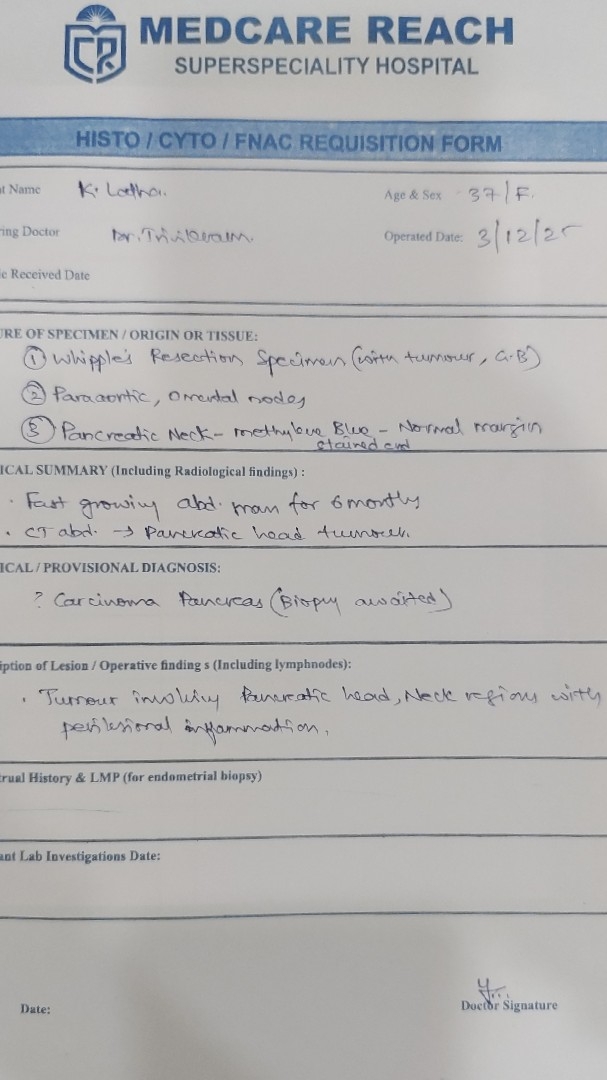 MEDCARE REACH
SUPERSPECIALITY HOSPITAL
HISTO / CYTO / FNAC REQUISITION FORM
t Name K. Latha. Age & Sex 37/F.
ring Doctor Dr. Trivikram. Operated Date: 3/12/25
e Received Date
URE OF SPECIMEN / ORIGIN OR TISSUE:
① Whipple's Resection Specimen (with tumour, G.B)
② Paraaortic, Omental nodes
③ Pancreatic Neck - methylene Blue - Normal margin
stained end
ICAL SUMMARY (Including Radiological findings) :
. Fast growing abd. mass for 6 months
. CT abd. → Pancreatic head tumour.
ICAL / PROVISIONAL DIAGNOSIS:
? Carcinoma Pancreas (Biopsy awaited)
iption of Lesion / Operative finding s (Including lymphnodes):
. Tumour involving Pancreatic head, Neck regions with
perilesional inflammation.
trual History & LMP (for endometrial biopsy)
ant Lab Investigations Date:
Date: Doctor Signature